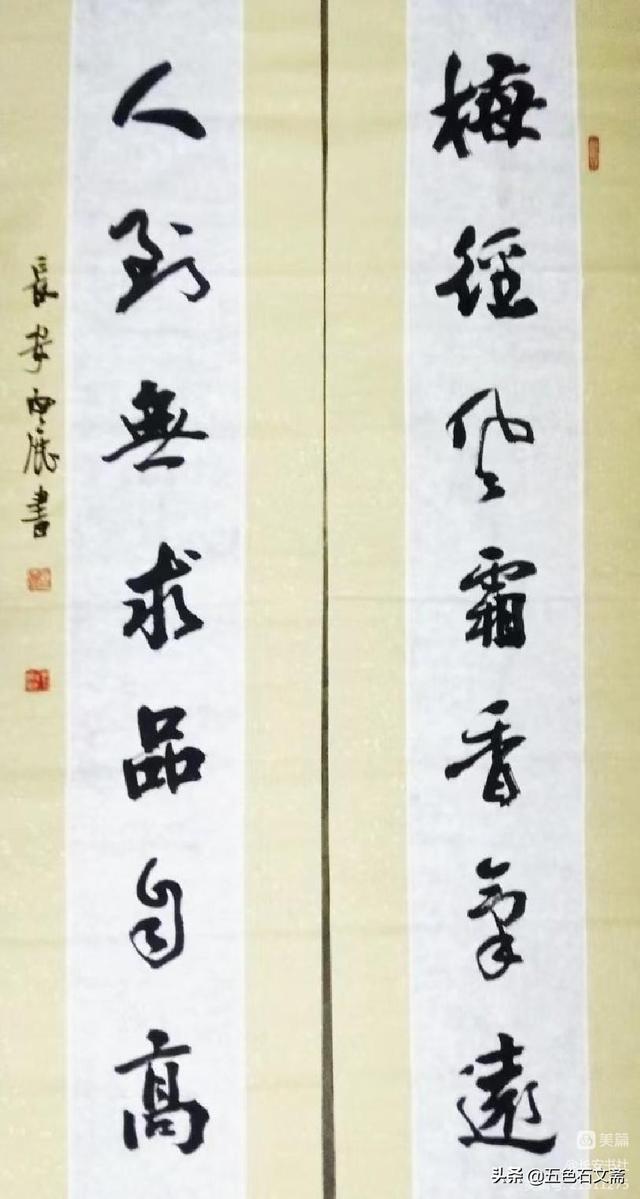 梅經風霜香氣遠
人到無求品自高
長安 書
美篇
头条 @五色石文斋